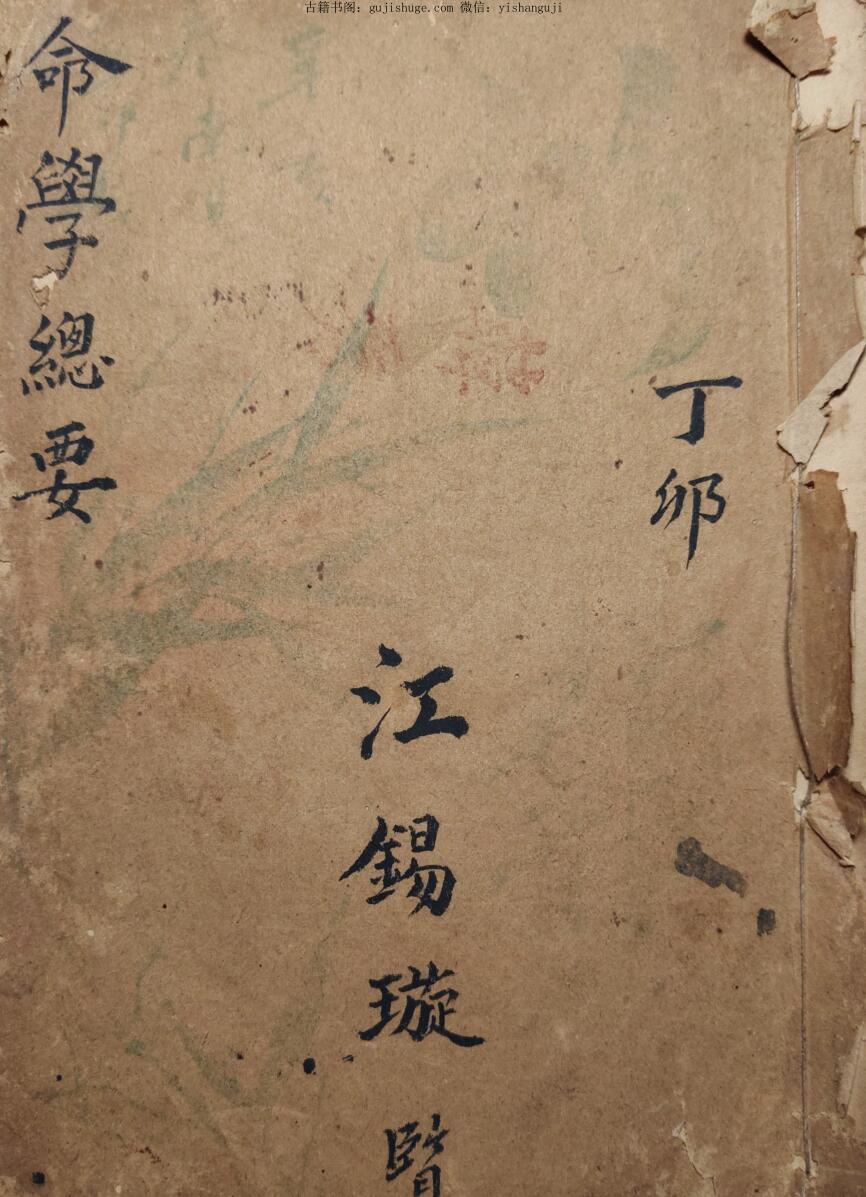 古籍书阁：gujishuge.com 微信：yishanguji
丁卯
江錫璇覽
命學總要